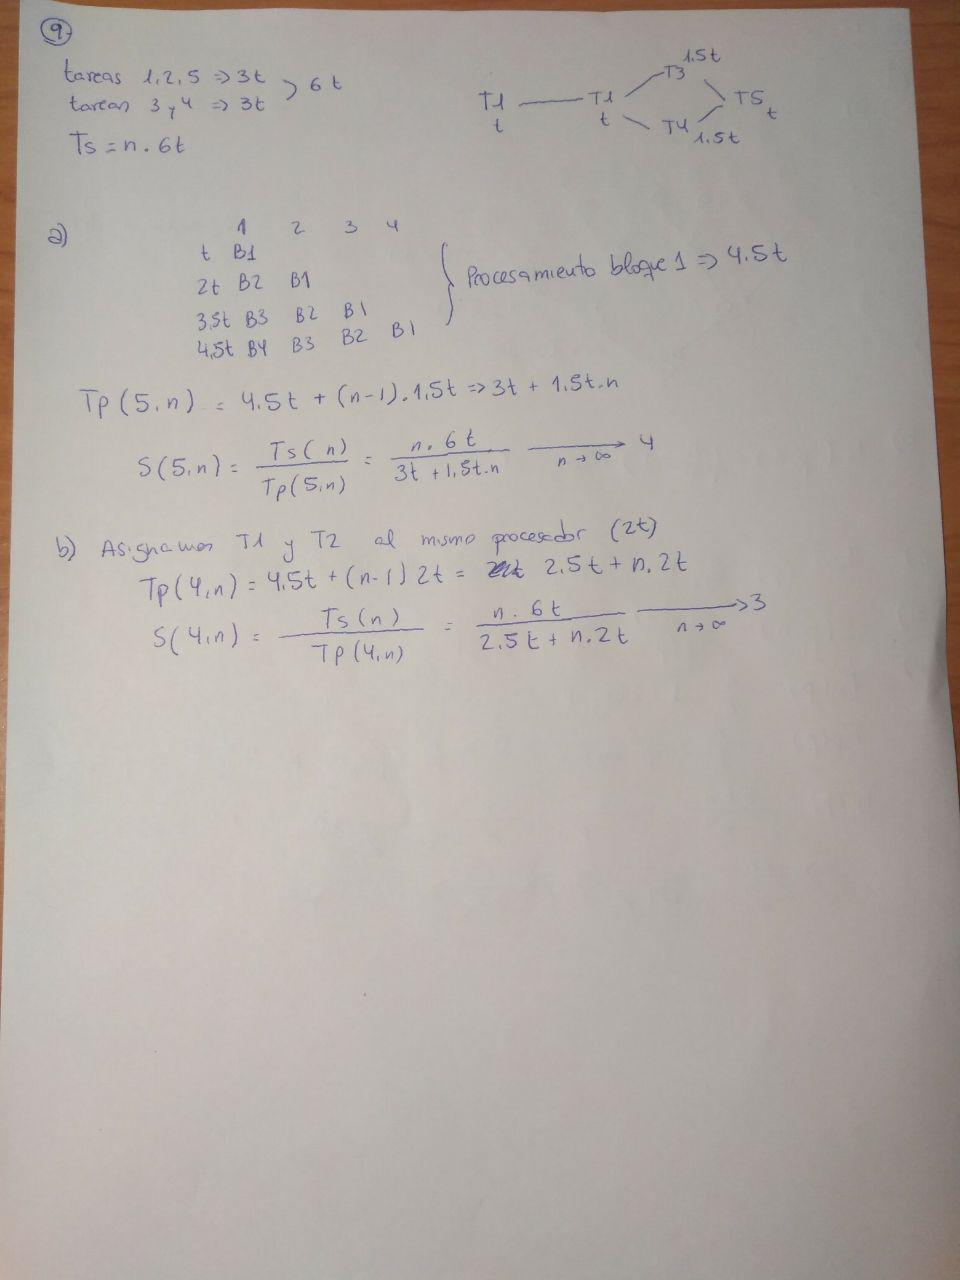 9
tareas 1,2,5 => 3t
tareas 3 y 4 => 3t > 6t
Ts = n. 6t
T1 t — T1 t T3 1.5t T4 1.5t T5 t
a)
1 2 3 4
t B1
2t B2 B1
3,5t B3 B2 B1
4,5t B4 B3 B2 B1
} Procesamiento bloque 1 => 4.5t
Tp(5,n) = 4.5t + (n-1).1,5t => 3t + 1,5t.n
S(5,n) = Ts(n) / Tp(5,n) = n. 6t / 3t + 1,5t.n → n→∞ 4
b) Asignamos T1 y T2 al mismo procesador (2t)
Tp(4,n) = 4,5t + (n-1) 2t = 2.5t + n. 2t
S(4,n) = Ts(n) / Tp(4,n) = n. 6t / 2.5t + n. 2t → n→∞ 3